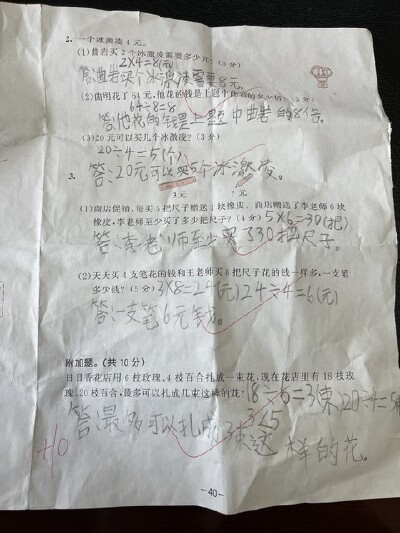 2. 一个冰激凌4元。
(1)曲岩买2个冰激凌需要多少元?(3分)
2×4=8(元)
答:曲岩买2个冰激凌需要8元。
(2)曲明花了64元,他花的钱是上题中曲岩的多少倍?(3分)
64÷8=8
答:他花的钱是上题中曲岩的8倍。
(3)20元可以买几个冰激凌?(3分)
20÷4=5(个)
答:20元可以买5个冰激凌。
3.
3元 ?元
(1)商店促销,每买5把尺子赠送1块橡皮。商店赠送了李老师6块
橡皮,李老师至少买了多少把尺子?(4分) 5×6=30(把)
答:李老师至少买了30把尺子。
(2)天天买4支笔花的钱和王老师买8把尺子花的钱一样多,一支笔
多少钱?(5分) 3×8=24(元) 24÷4=6(元)
答:一支笔6元钱。
附加题。(共10分)
日日香花店用6枝玫瑰、4枝百合扎成一束花,现在花店里有18枝玫
瑰、20枝百合,最多可以扎成几束这样的花? 18÷6=3(束) 20÷4=5
3<5
答:最多可以扎成3束这样的花。
+10
-40-